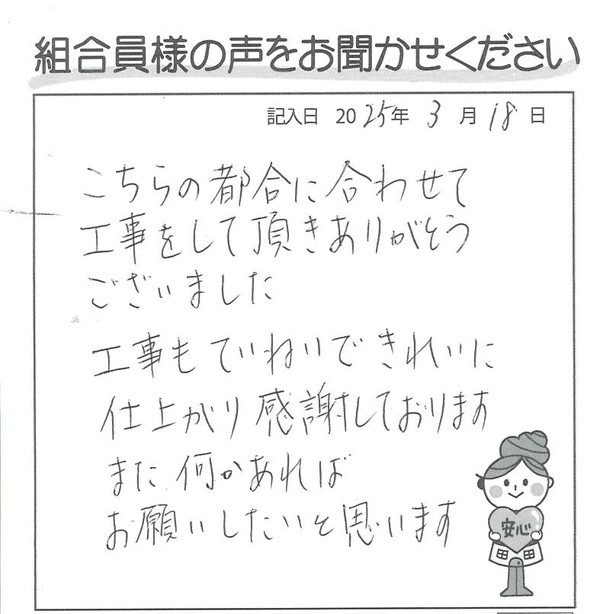 組合員様の声をお聞かせください
記入日 2025年 3月 18日
こちらの都合に合わせて
工事をして頂きありがとう
ございました
工事もていねいできれいに
仕上がり感謝しております
また何かあれば
お願いしたいと思います
安心